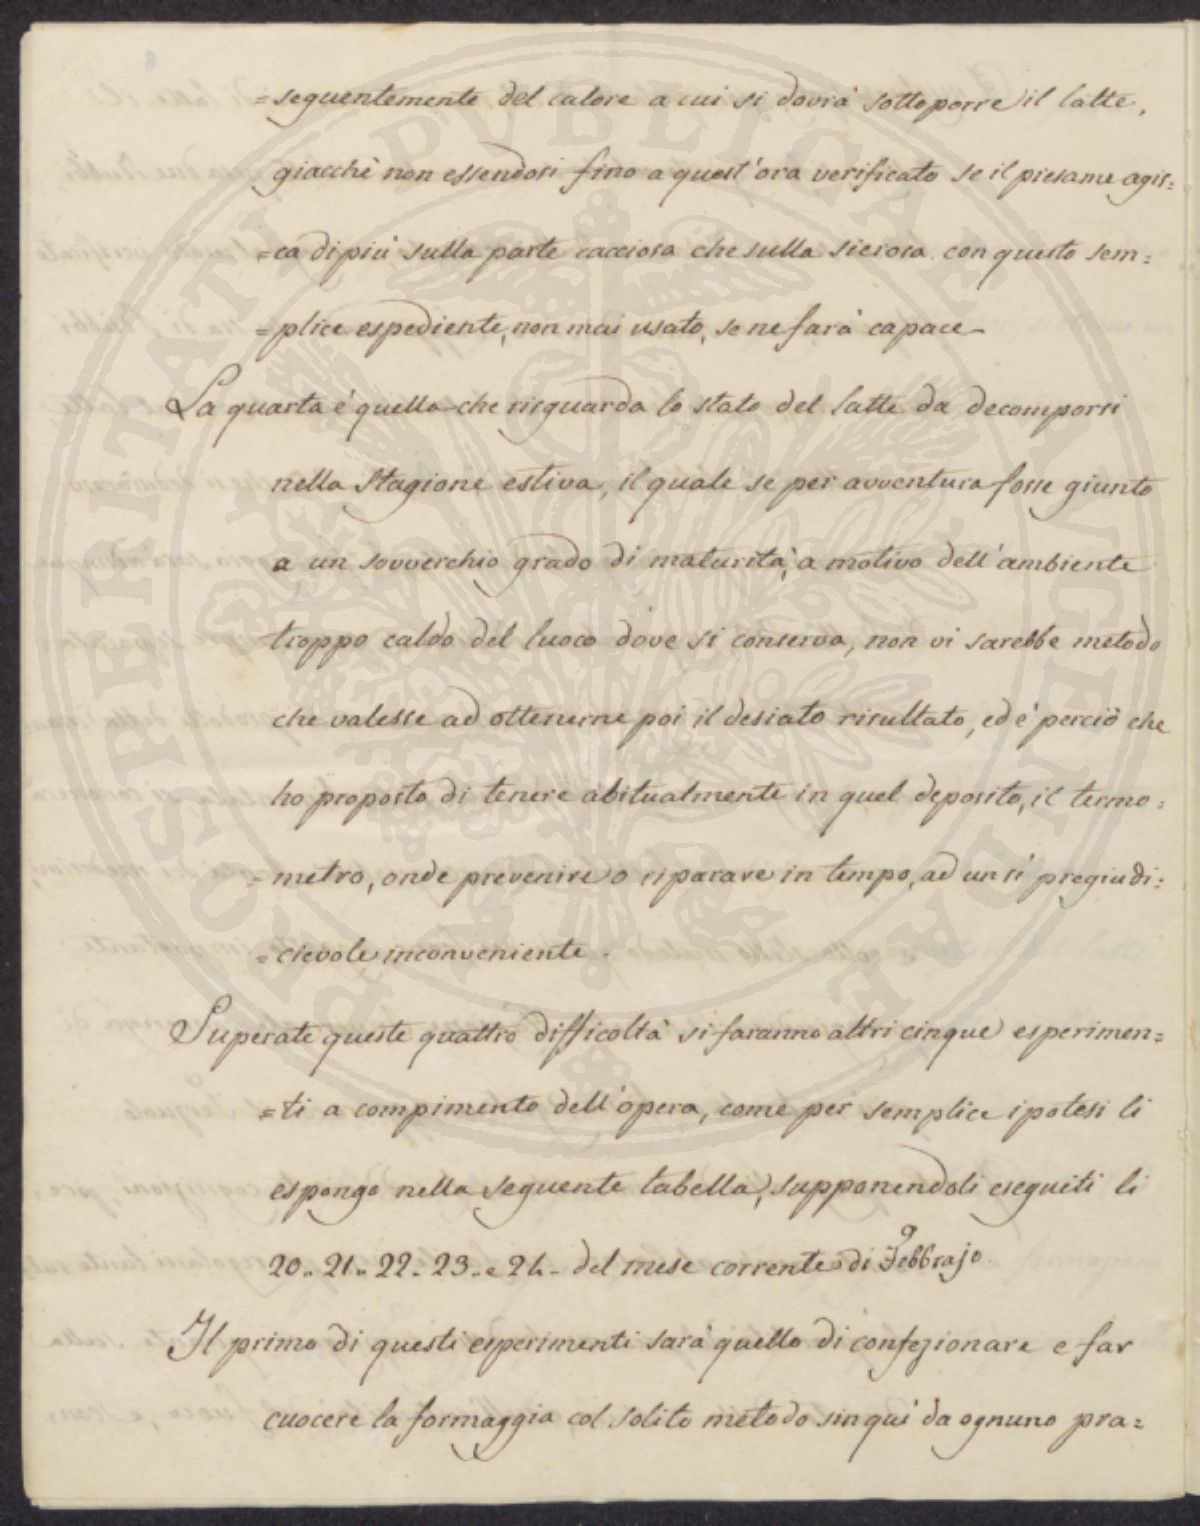 =seguentemente del calore a cui si dovrà sottoporre il latte,
giacchè non essendosi fino a quest'ora verificato se il presame agis=
=ca di più sulla parte cacciosa che sulla sierosa, con questo sem=
=plice espediente, non mai usato, se ne farà capace.
La quarta è quella che risguarda lo stato del latte da decomporsi
nella Stagione estiva, il quale se per avventura fosse giunto
a un sovverchio grado di maturità, a motivo dell'ambiente
troppo caldo del luoco dove si conserva, non vi sarebbe metodo
che valesse ad ottenerne poi il desiato risultato, ed è perciò che
ho proposto di tenere abitualmente in quel deposito, il termo=
=metro, onde prevenire o riparare in tempo, ad un sì pregiudi=
=cievole inconveniente.
Superate queste quattro difficoltà si faranno altri cinque esperimen=
=ti a compimento dell'opera, come per semplice ipotesi li
espongo nella seguente tabella, supponendoli eseguiti li
20.. 21.. 22.. 23.. e 24.. del mese corrente di Febbrajo.
Il primo di questi esperimenti sarà quello di confezionare e far
cuocere la formaggia col solito metodo sin quì da ognuno pra=
PROSPERITATI PUBLICAE AUGENDAE